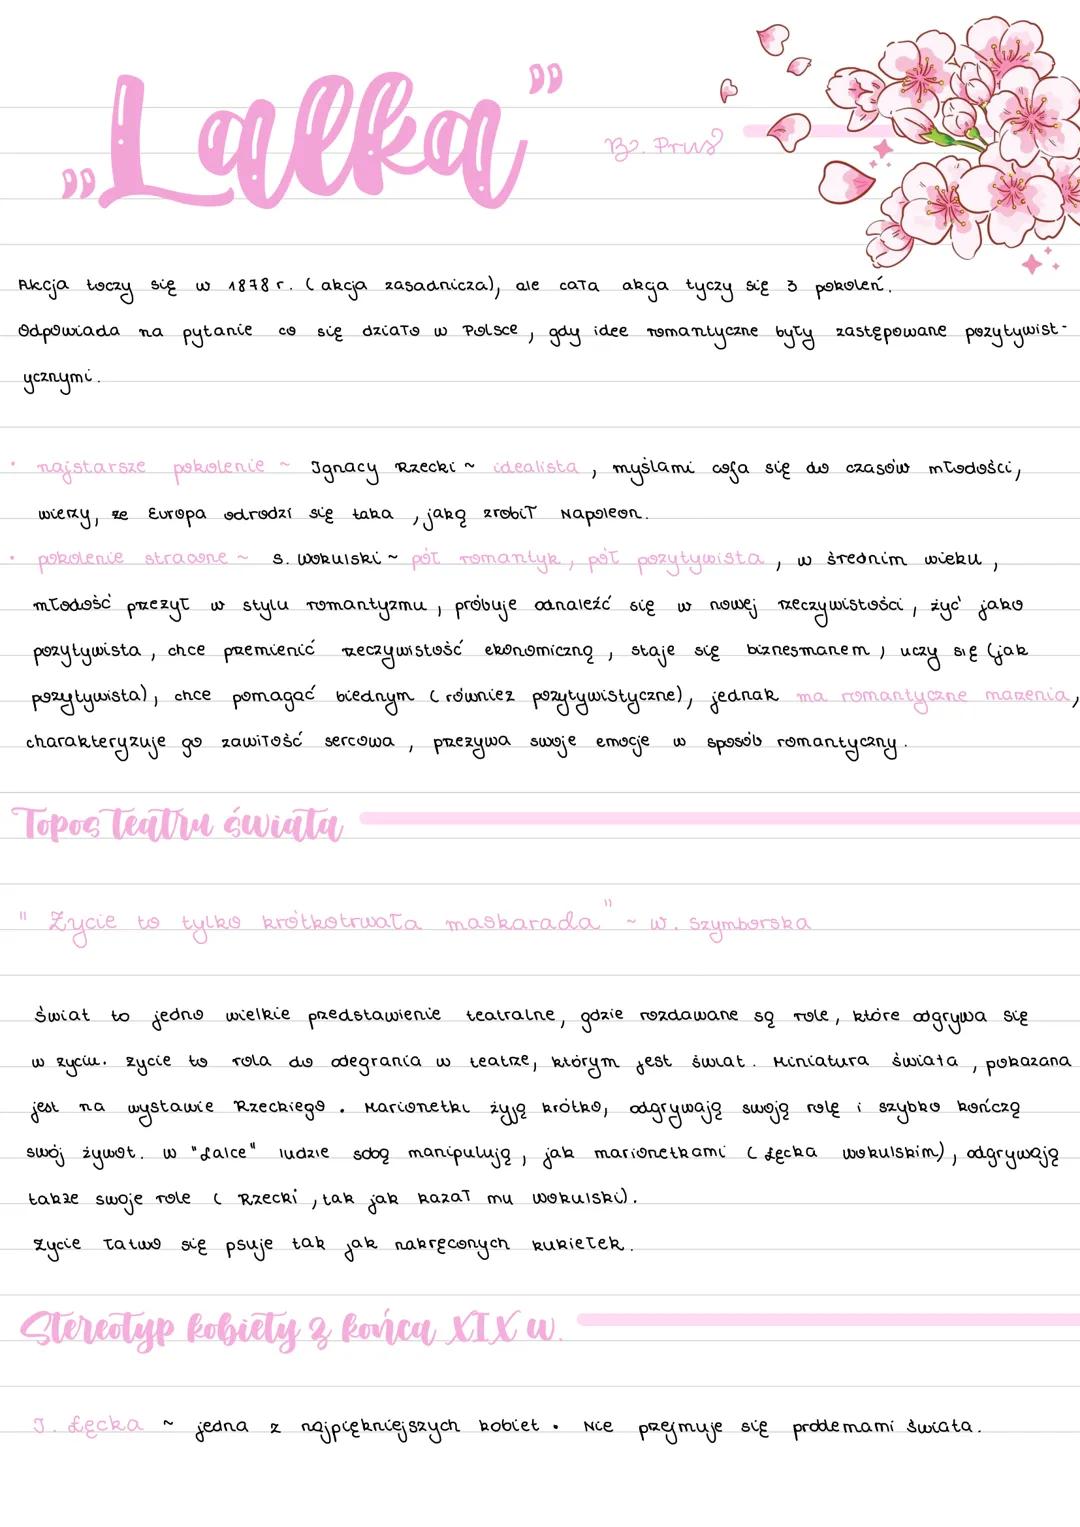 „Lalka” B. Prus
Akcja toczy się w 1878 r. (akcja zasadnicza), ale cała akcja tyczy się 3 pokoleń.
Odpowiada na pytanie co się działo w Polsce, gdy idee romantyczne były zastępowane pozytywist-
ycznymi.
• najstarsze pokolenie ~ Ignacy Rzecki ~ idealista, myślami cofa się do czasów młodości,
wierzy, że Europa odrodzi się taka, jaką zrobił Napoleon.
• pokolenie stracone ~ S. Wokulski ~ pół romantyk, pół pozytywista, w średnim wieku,
młodość przeżył w stylu romantyzmu, próbuje odnaleźć się w nowej rzeczywistości, żyć jako
pozytywista, chce przemienić rzeczywistość ekonomiczną, staje się biznesmanem, uczy się (jak
pozytywista), chce pomagać biednym (również pozytywistyczne), jednak ma romantyczne marzenia,
charakteryzuje go zawiłość sercowa, przeżywa swoje emocje w sposób romantyczny.
Topos teatru świata
" Życie to tylko krótkotrwała maskarada" ~ W. Szymborska
Świat to jedno wielkie przedstawienie teatralne, gdzie rozdawane są role, które odgrywa się
w życiu. Życie to rola do odegrania w teatrze, którym jest świat. Miniatura świata, pokazana
jest na wystawie Rzeckiego. Marionetki żyją krótko, odgrywają swoją rolę i szybko kończą
swój żywot. W "Lalce" ludzie sobą manipulują, jak marionetkami (Łęcka Wokulskim), odgrywają
także swoje role (Rzecki, tak jak kazał mu Wokulski).
Życie łatwo się psuje tak jak nakręconych kukiełek.
Stereotyp kobiety z końca XIX w.
I. Łęcka ~ jedna z najpiękniejszych kobiet. Nie przejmuje się problemami świata.